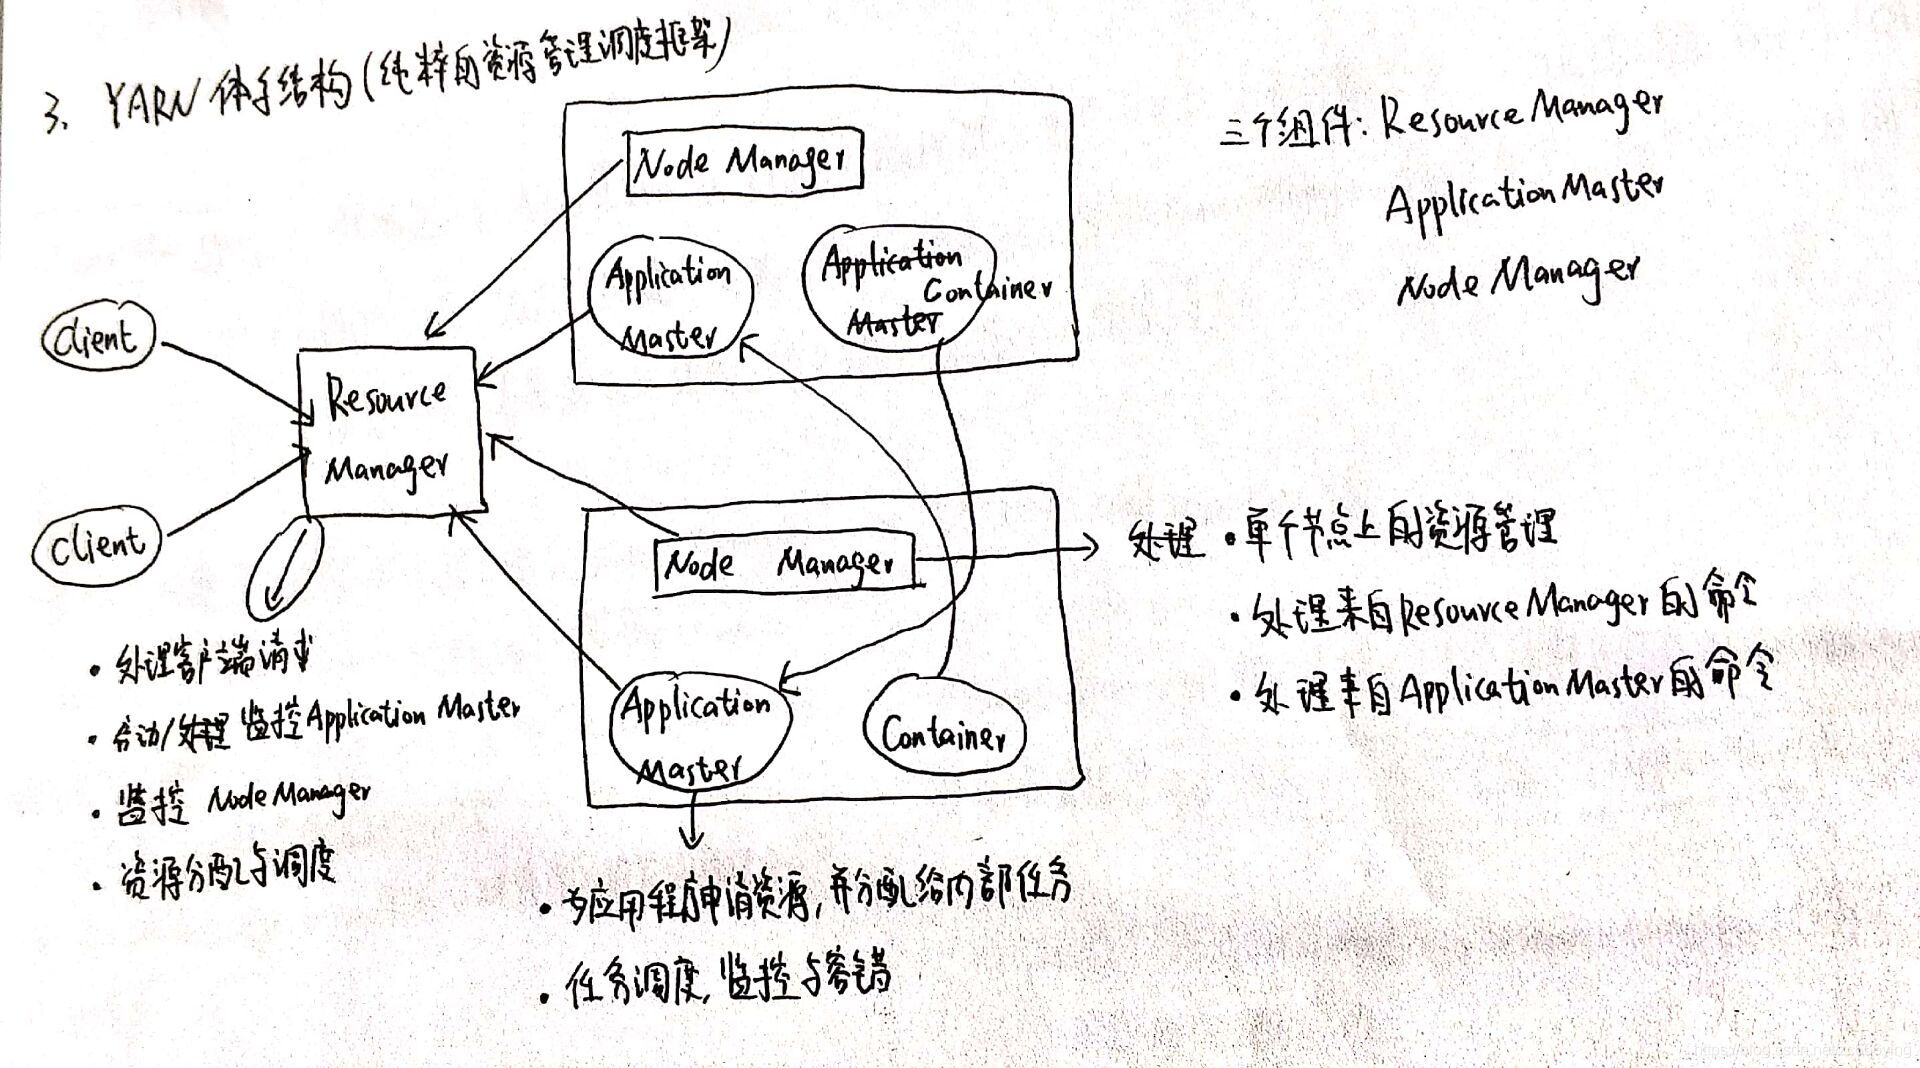 3、YARN 体系结构(纯粹的资源管理调度框架)
三个组件: Resource Manager
Application Master
Node Manager
Node Manager
Application
Master
Application
Container
Master
Client
Client
Resource
Manager
Node Manager
Application
Master
Container
处理 · 单个节点上的资源管理
· 处理来自 Resource Manager 的命令
· 处理来自 Application Master 的命令
· 处理客户端请求
· 启动/处理 监控 Application Master
· 监控 Node Manager
· 资源分配与调度
· 为应用程序申请资源, 并分配给内部任务
· 任务调度, 监控与容错